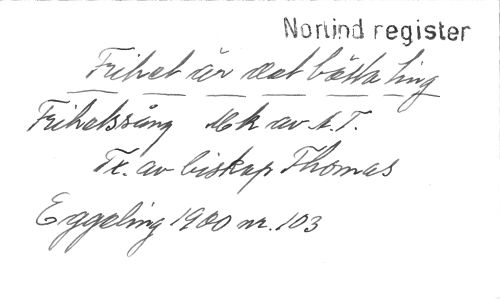 Norlind register
Frihet är det bästa ting
Frihetssång Mk av A. T.
Tx. av biskop Thomas
Eggeling 1900 nr. 103